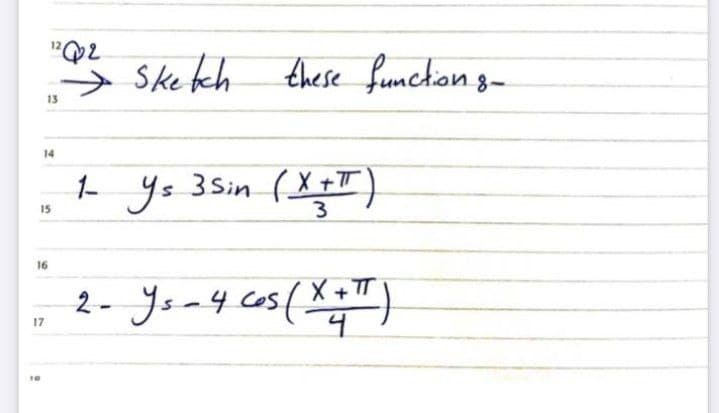 12 Q2
→ Sketch these functions:-
13
14
1- y = 3 sin (X+π/3)
15
16
2- y = -4 cos (X+π/4)
17
18